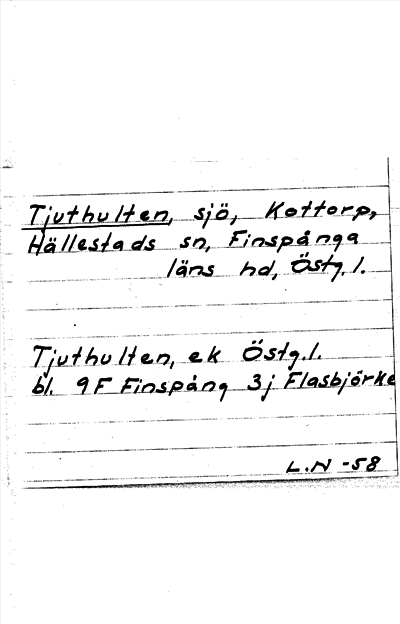 Tjuthulten, sjö, Kottorp,
Hällestads sn, Finspånga
läns hd, Östg.l.
Tjuthulten, ek Östg.l.
bl. 9F Finspång 3j Flasbjörke
L.N -58